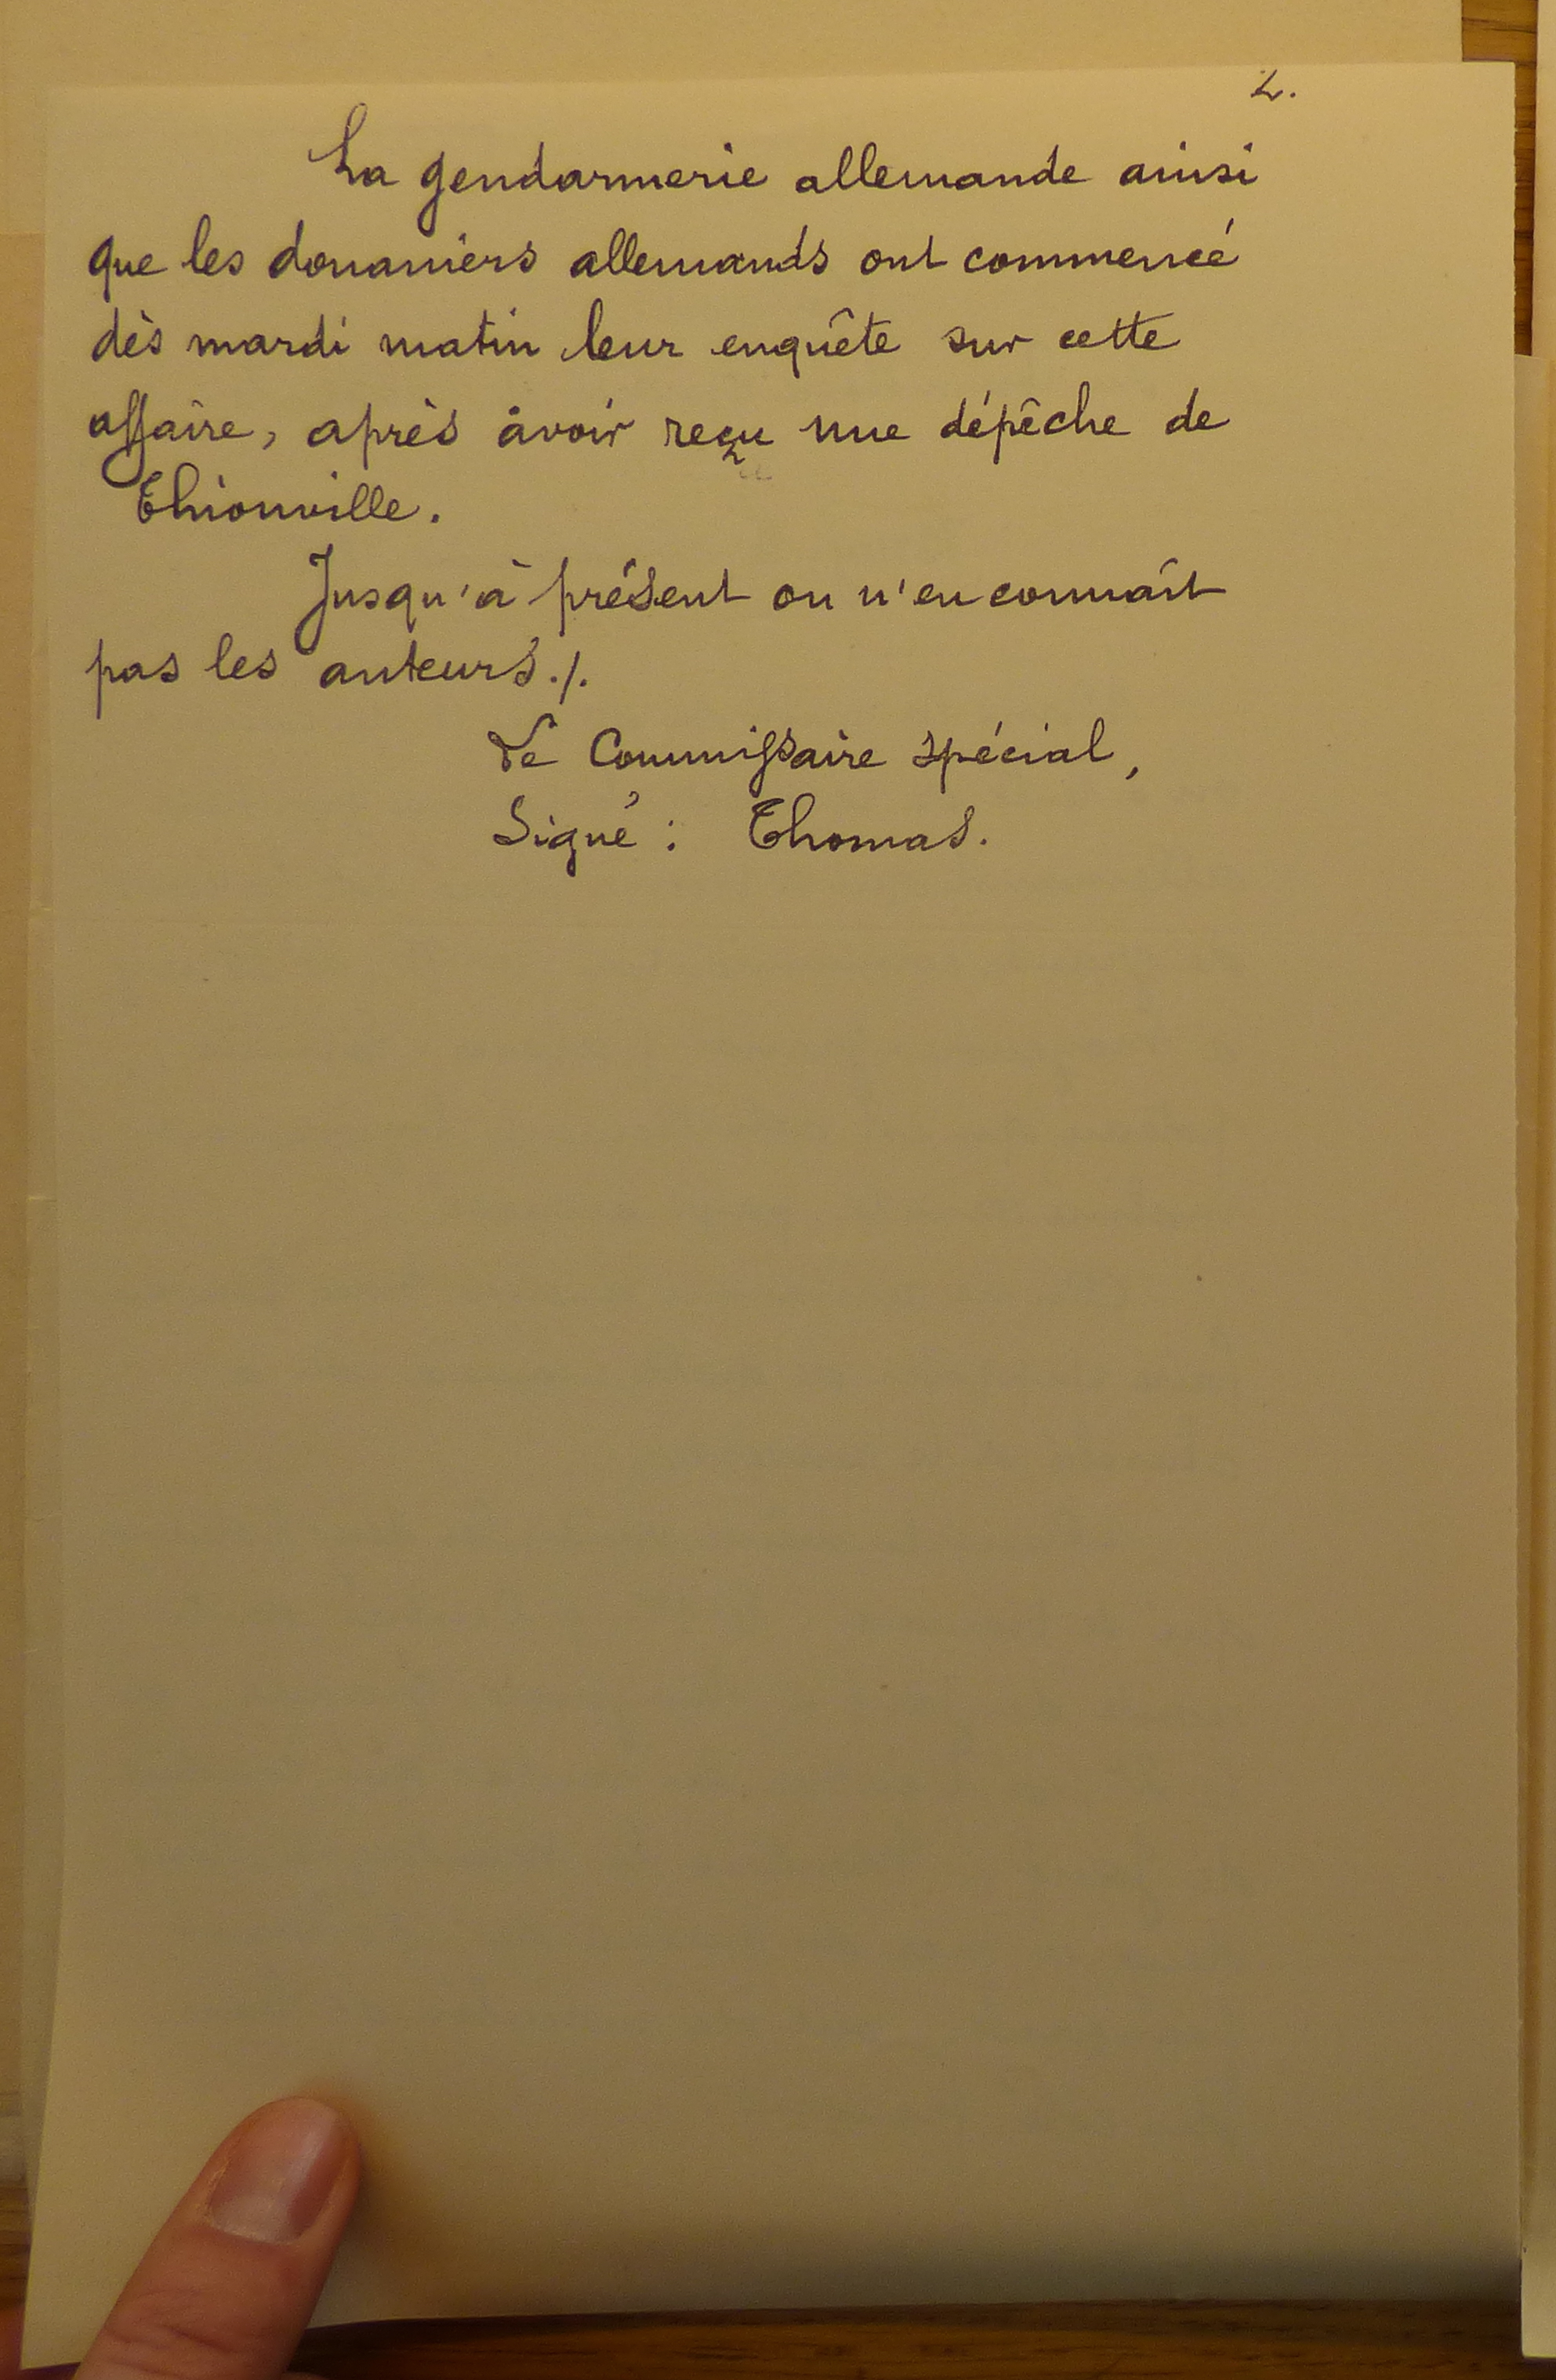 2.
La gendarmerie allemande ainsi
que les douaniers allemands ont commencé
dès mardi matin leur enquête sur cette
affaire, après avoir reçu une dépêche de
Thionville.
Jusqu'à présent on n'en connaît
pas les auteurs./.
Le Commissaire spécial,
Signé : Thomas.